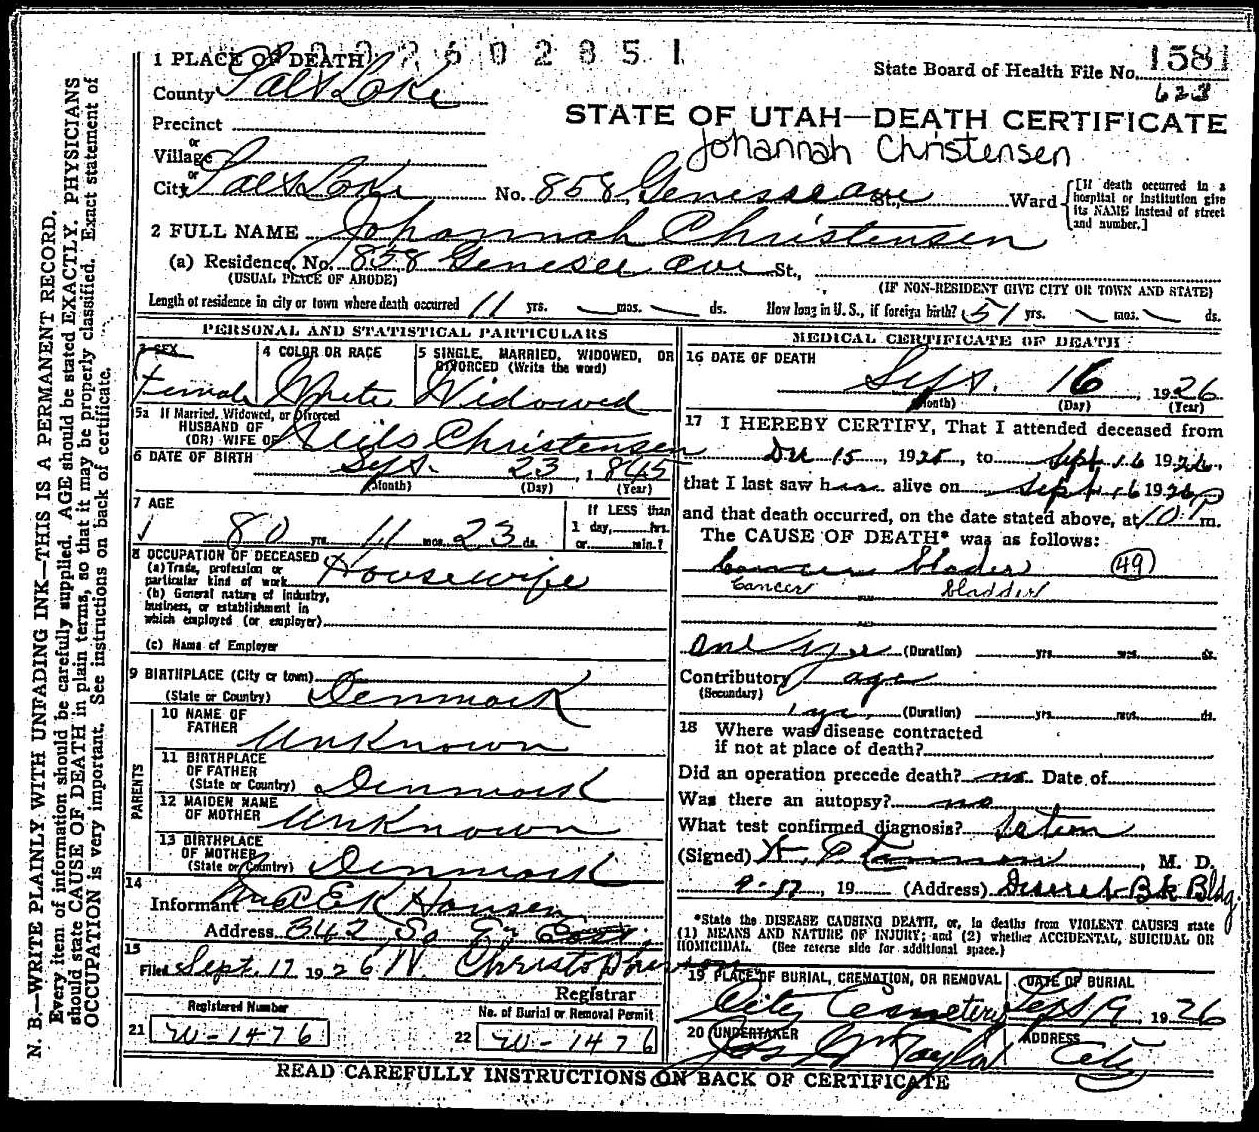 N. B.—WRITE PLAINLY WITH UNFADING INK—THIS IS A PERMANENT RECORD.
Every item of information should be carefully supplied. AGE should be stated EXACTLY. PHYSICIANS
should state CAUSE OF DEATH in plain terms, so that it may be properly classified. Exact statement of
OCCUPATION is very important. See instructions on back of certificate.
2602851
1 PLACE OF DEATH
County Salt Lake
Precinct
or
Village
or
City Salt Lake
State Board of Health File No. 1581
623
STATE OF UTAH—DEATH CERTIFICATE
Johannah Christensen
No. 858 Genessee ave St., Ward
[If death occurred in a
hospital or institution give
its NAME instead of street
and number.]
2 FULL NAME Johannah Christensen
(a) Residence, No. 858 Genesee ave St.,
(USUAL PLACE OF ABODE)
(IF NON-RESIDENT GIVE CITY OR TOWN AND STATE)
Length of residence in city or town where death occurred 11 yrs. — mos. — ds. How long in U. S., if foreign birth? 51 yrs. — mos. — ds.
PERSONAL AND STATISTICAL PARTICULARS
3 SEX
Female
4 COLOR OR RACE
White
5 SINGLE, MARRIED, WIDOWED, OR
DIVORCED (Write the word)
Widowed
5a If Married, Widowed, or Divorced
HUSBAND OF
(OR) WIFE OF Neils Christensen
6 DATE OF BIRTH Sept. 23, 1845
(Month) (Day) (Year)
7 AGE
80 yrs. 11 mos. 23 ds.
If LESS than
1 day,......hrs.
or......min.?
8 OCCUPATION OF DECEASED
(a) Trade, profession or
particular kind of work Housewife
(b) General nature of industry,
business, or establishment in
which employed (or employer)
(c) Name of Employer
9 BIRTHPLACE (City or town)
(State or Country) Denmark
PARENTS
10 NAME OF
FATHER Unknown
11 BIRTHPLACE
OF FATHER
(State or Country) Denmark
12 MAIDEN NAME
OF MOTHER Unknown
13 BIRTHPLACE
OF MOTHER
(State or Country) Denmark
14
Informant Hansen
Address 342 So
15
Filed Sept. 17 1926 W. Christopherson
Registrar
Registered Number
21 W-1476
No. of Burial or Removal Permit
22 W-1476
MEDICAL CERTIFICATE OF DEATH
16 DATE OF DEATH
Sept. 16 1926
(Month) (Day) (Year)
17 I HEREBY CERTIFY, That I attended deceased from
Dec 15, 1925, to Sept 16 1926.
that I last saw h alive on Sept 16 1926
and that death occurred, on the date stated above, at 10 p m.
The CAUSE OF DEATH* was as follows:
Cancer bladder (49)
Cancer bladder
one (Duration) yrs. mos. ds.
Contributory age
(Secondary)
1 yr. (Duration) yrs. mos. ds.
18 Where was disease contracted
if not at place of death?
Did an operation precede death? no Date of
Was there an autopsy? no
What test confirmed diagnosis?
(Signed) , M. D.
9-17, 19 (Address) Deseret Bk Bldg.
*State the DISEASE CAUSING DEATH, or, in deaths from VIOLENT CAUSES state
(1) MEANS AND NATURE OF INJURY; and (2) whether ACCIDENTAL, SUICIDAL OR
HOMICIDAL. (See reverse side for additional space.)
19 PLACE OF BURIAL, CREMATION, OR REMOVAL
City Cemetery
DATE OF BURIAL
Sept 19, 1926
20 UNDERTAKER
Jos Wm Taylor
ADDRESS
City
READ CAREFULLY INSTRUCTIONS ON BACK OF CERTIFICATE